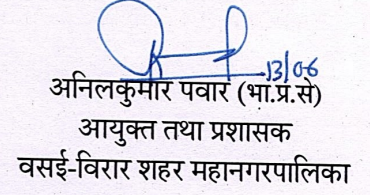 13/06
अनिलकुमार पवार (भा.प्र.से)
आयुक्त तथा प्रशासक
वसई-विरार शहर महानगरपालिका